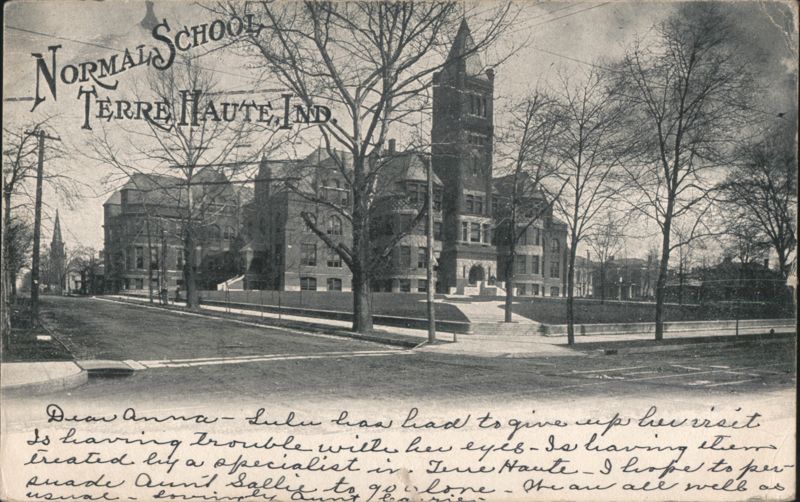 NORMAL SCHOOL
TERRE HAUTE, IND.
Dear Anna - Lulu has had to give up her visit
Is having trouble with her eyes - Is having them
treated by a specialist in Terre Haute - I hope to per-
suade Aunt Sallie to go alone - We are all well as
usual - Lovingly Aunt